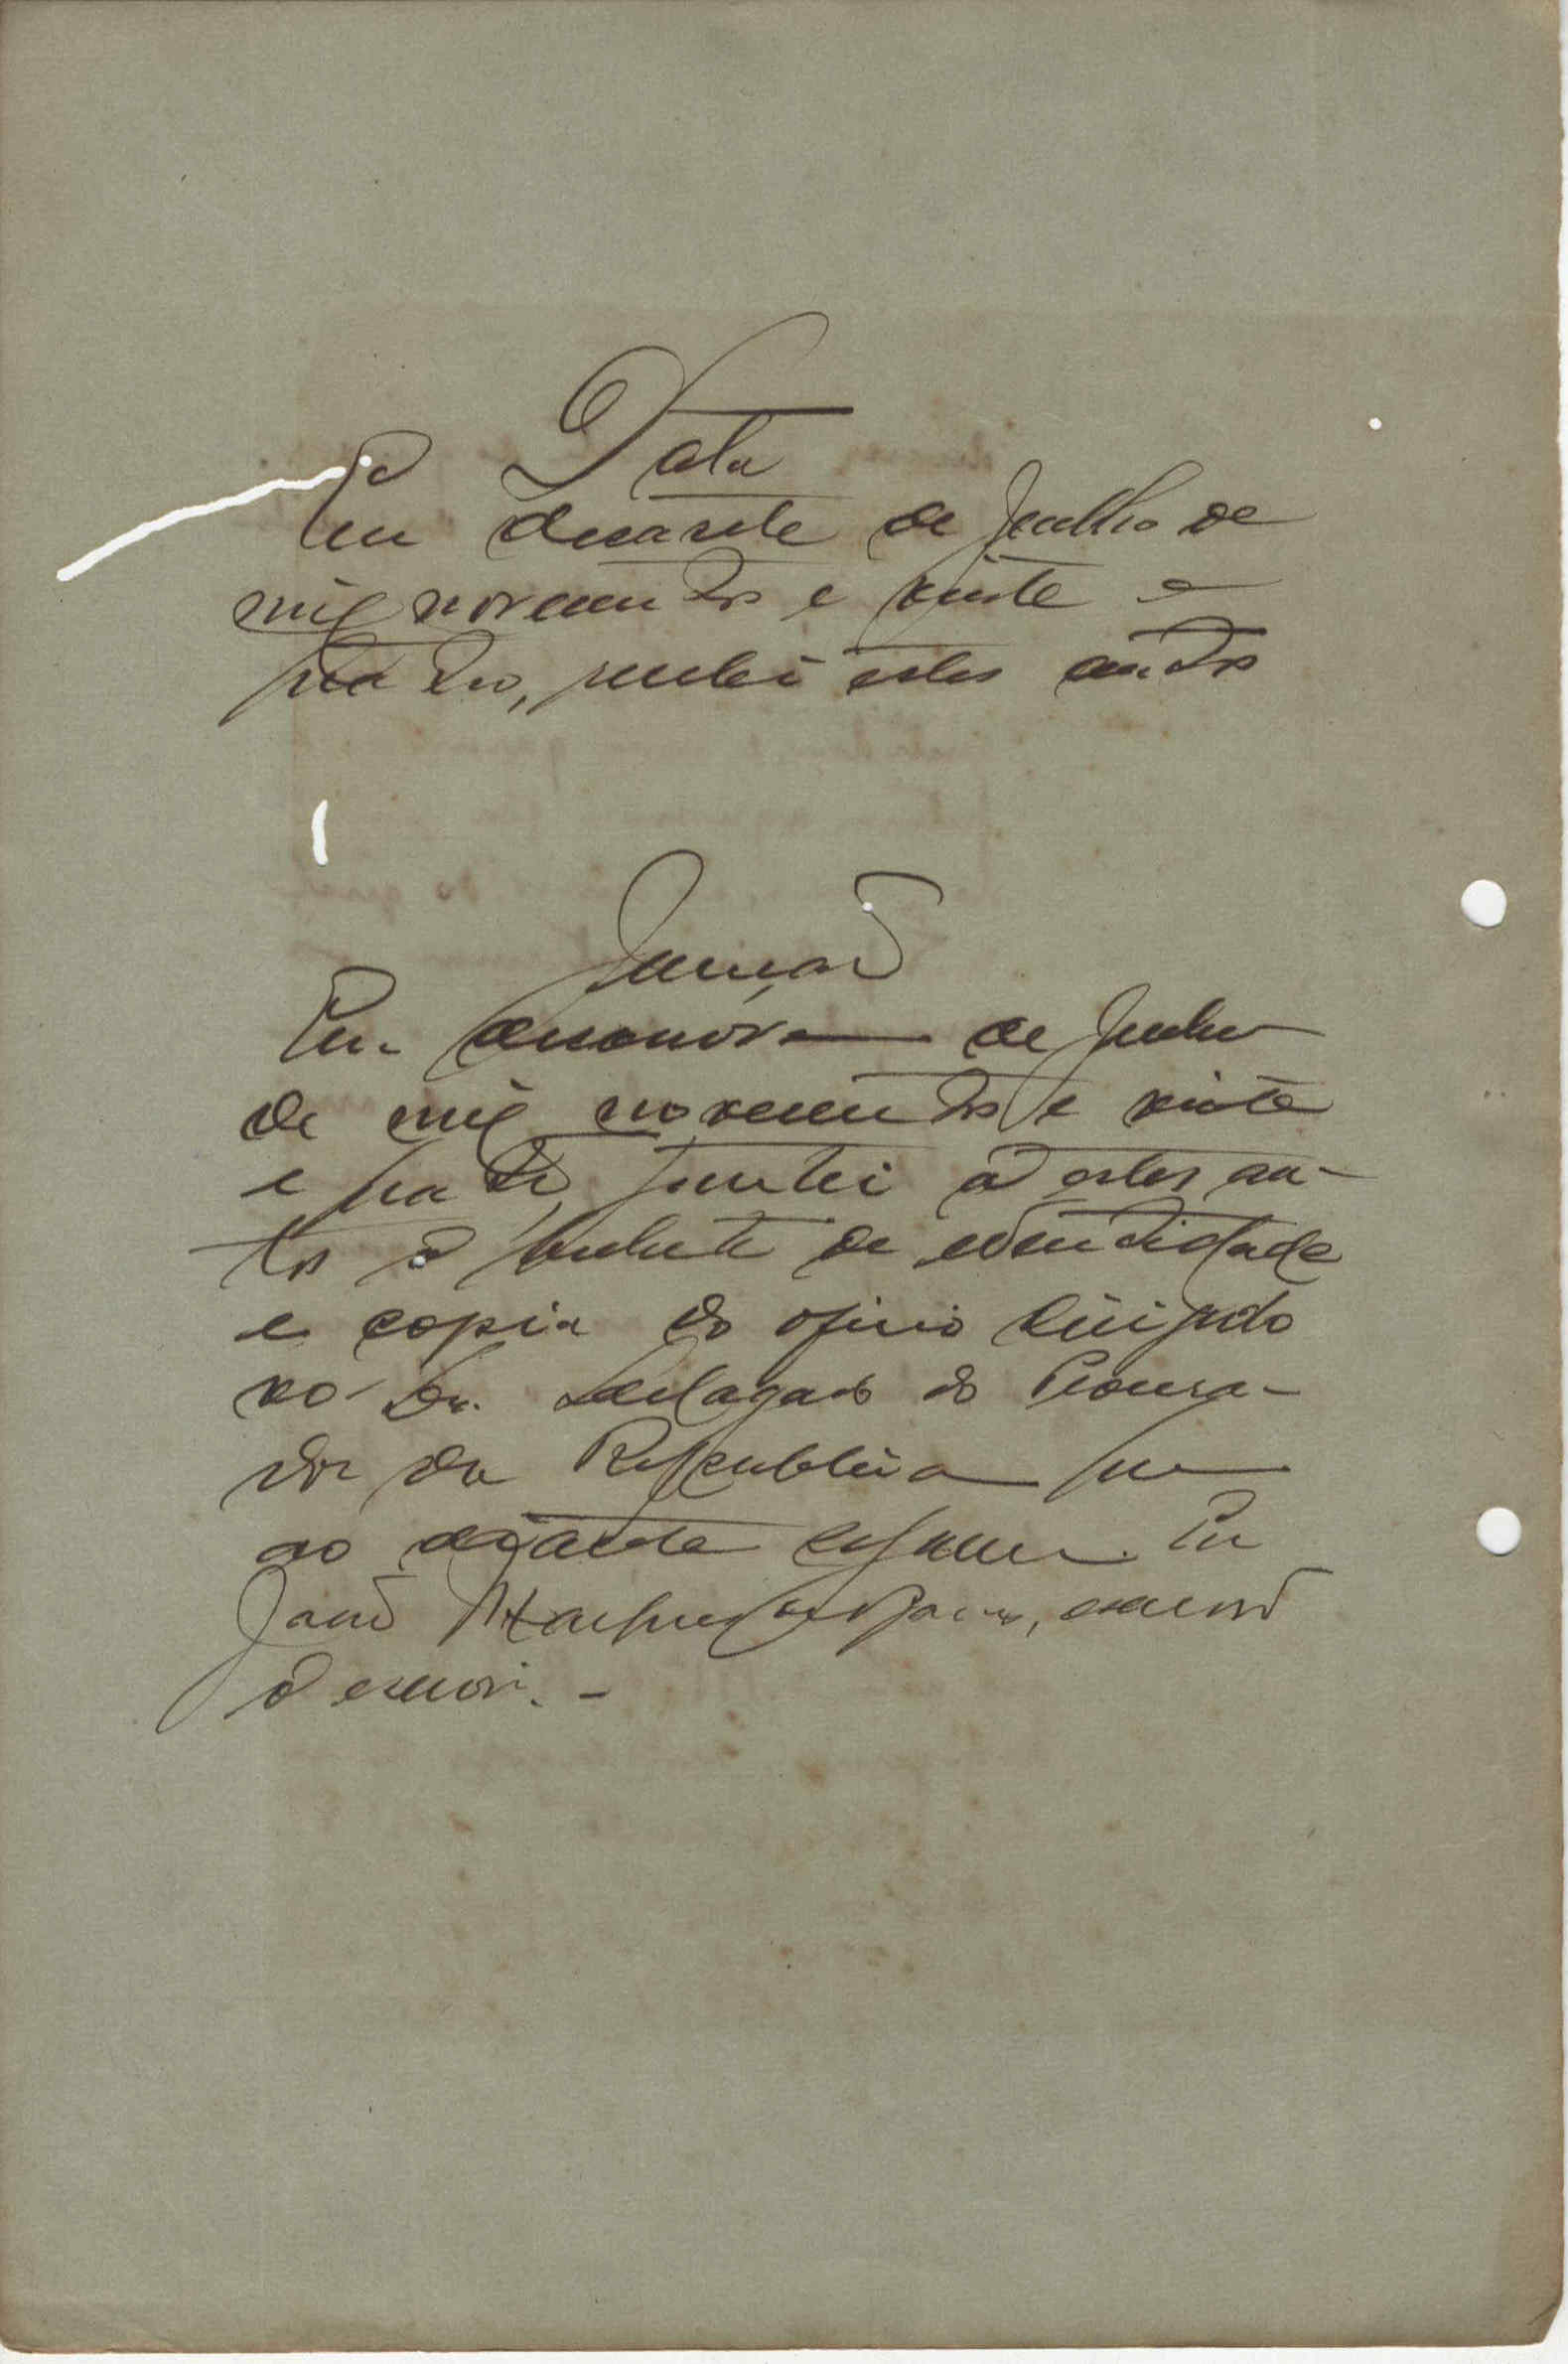 Data
Em desasete de Julho de
mil novecentos e vinte e
quatro, recebi estes autos
Juntada
Em desanove de Julho
de mil novecentos e vinte
e quatro, juntei a estes au-
tos o de edentidade
e copia do oficio dirigido
ao Dr. Delagado do Procura-
dor da Republica que
ao adiante seguem. Eu
escrivão
o escrevi. -